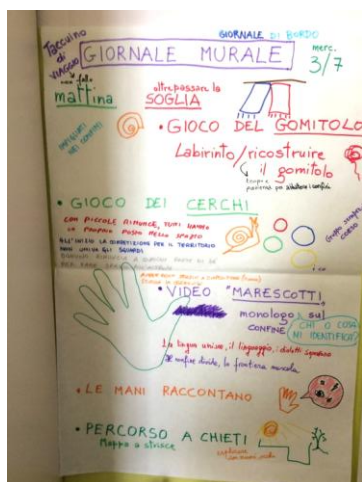 GIORNALE DI BORDO
Taccuino di VIAGGIO
GIORNALE MURALE
merc. 3/7
mattina
oltrepassare la SOGLIA
• GIOCO DEL GOMITOLO
Labirinto/ricostruire
il gomitolo
• GIOCO DEI CERCHI
CON PICCOLE RINUNCE, TUTTI HANNO
IL PROPRIO POSTO NELLO SPAZIO
ALL'INIZIO LA COMPETIZIONE PER IL TERRITORIO
NON UNIVA GLI SGUARDI
• VIDEO "MARESCOTTI"
monologo sul
CONFINE
CHI O COSA
MI IDENTIFICA?
La lingua unisce, il linguaggio, i dialetti
Il confine divide, la frontiera
• LE MANI RACCONTANO
• PERCORSO A CHIETI
Mappa a strisce